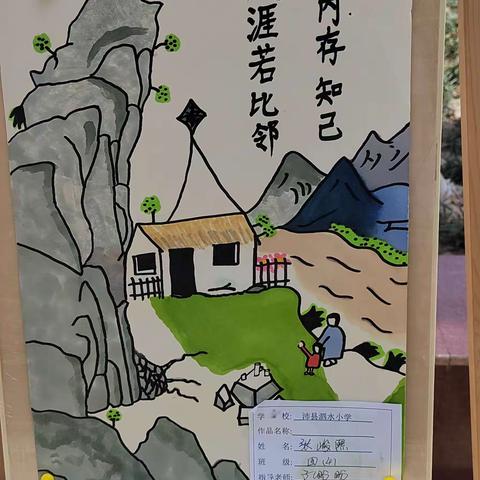 内存知己
涯若比邻
学 校: 沛县泗水小学
作品名称:
姓 名: 张峻熙
班 级: 四(4)
指导老师: